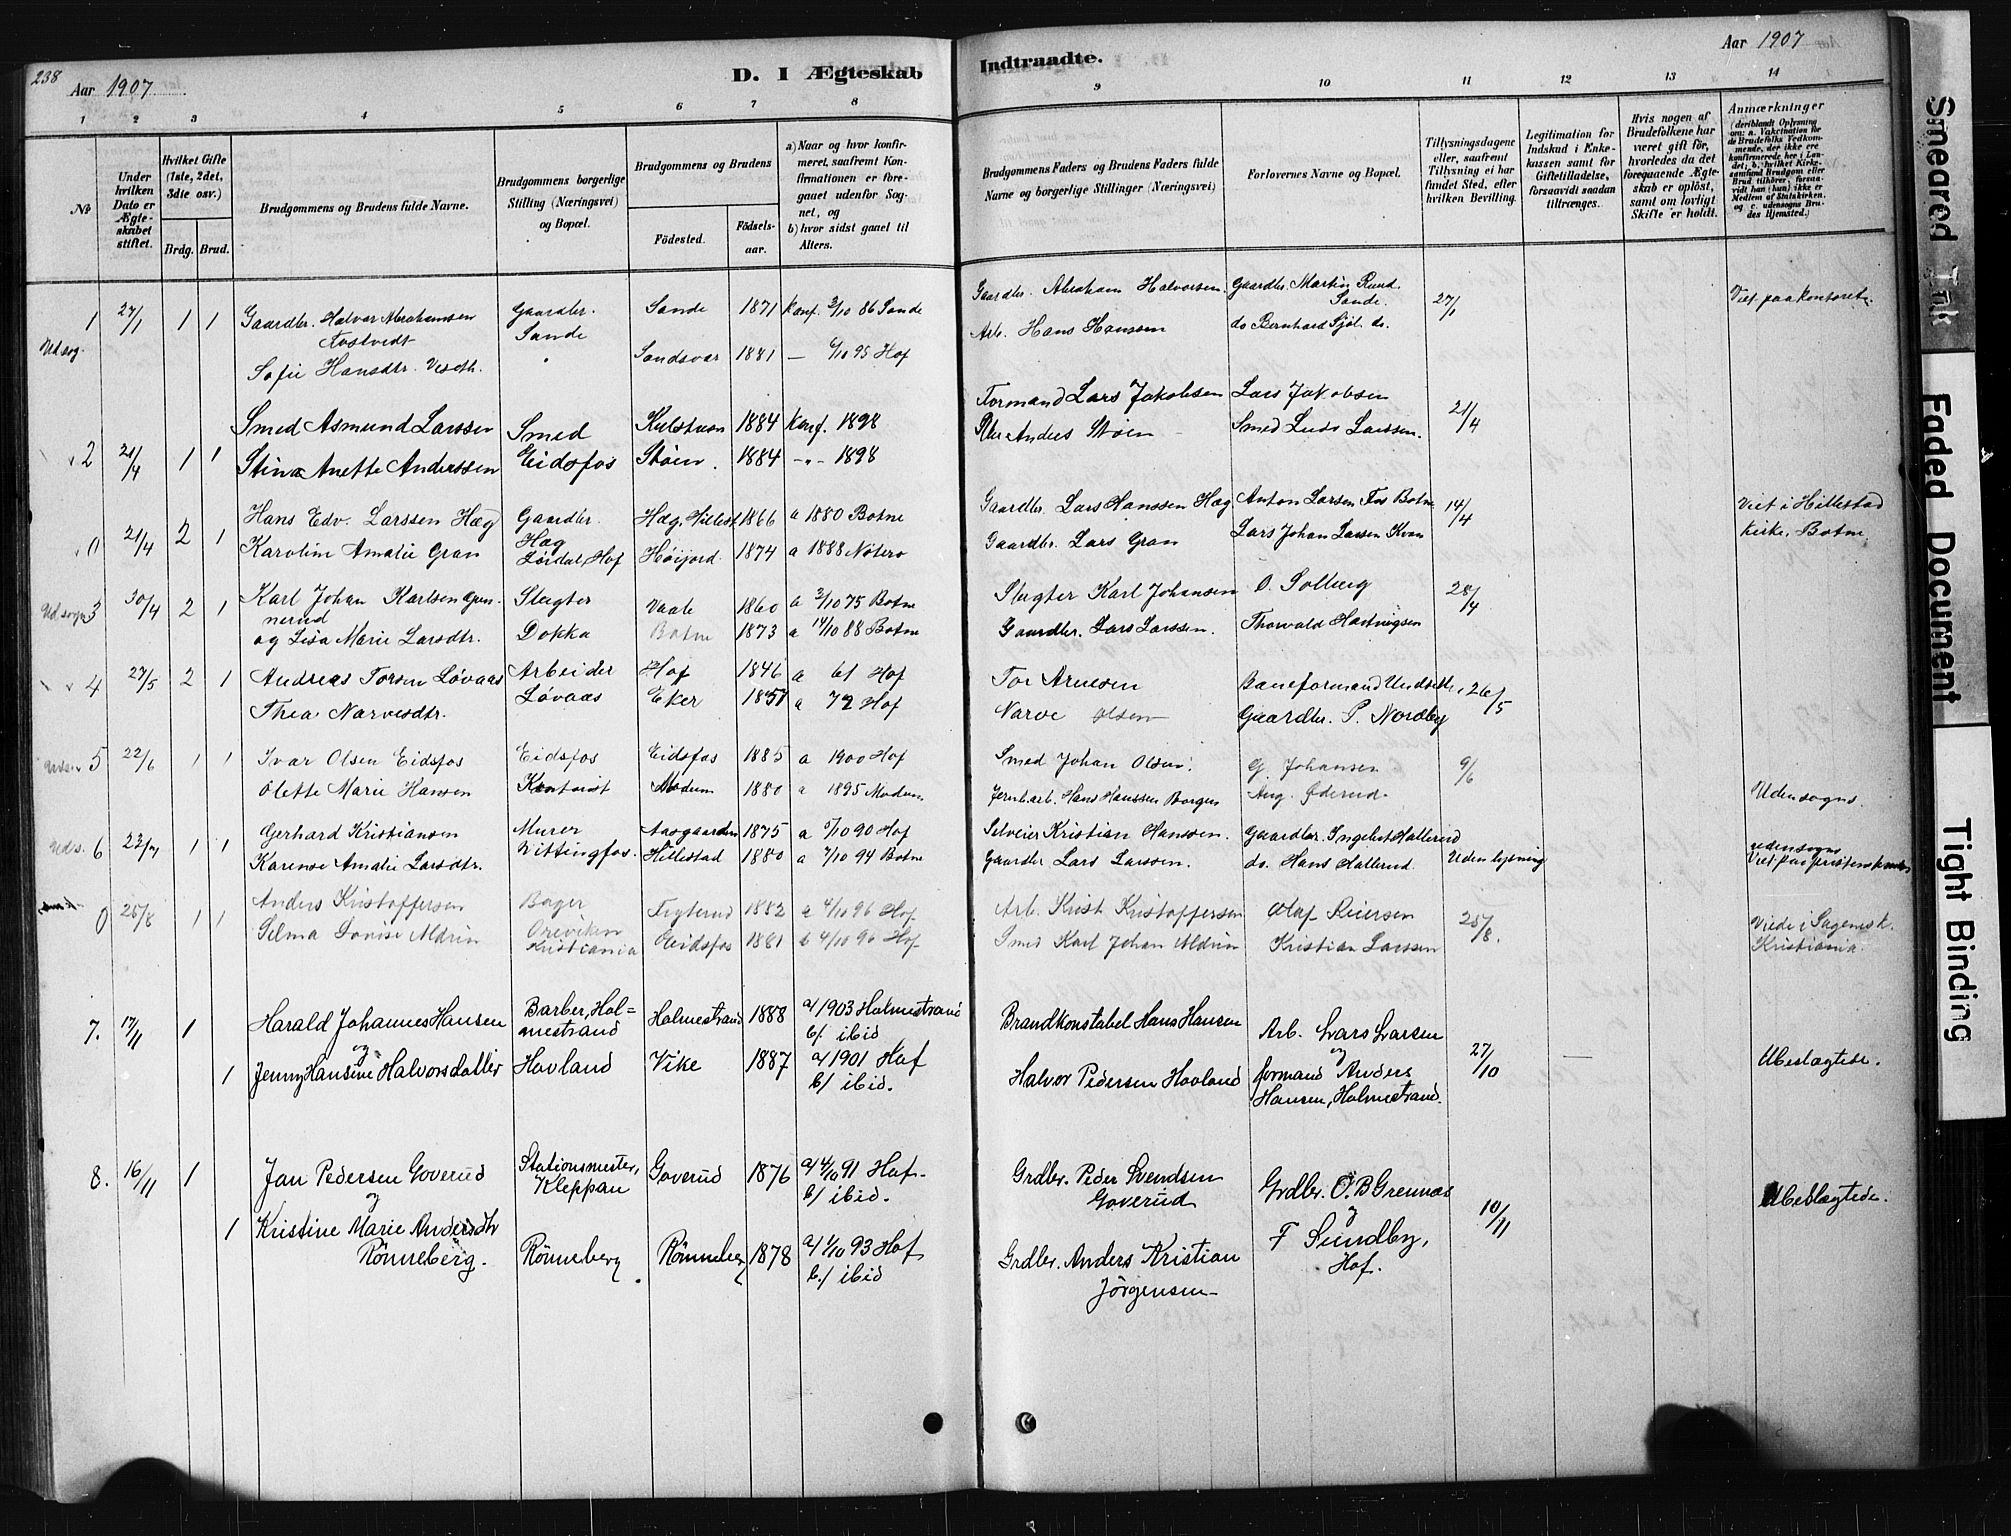 238
Aar 1907.
D. I Ægteskab
Indtraadte.
Aar 1907
1 2 3 4 5 6 7 8 9 10 11 12 13 14
№
Under hvilken Dato er Ægteskabet stiftet.
Hvilket Gifte (1ste, 2det, 3dte osv.)
Brdg. Brud.
Brudgommens og Brudens fulde Navne.
Brudgommens borgerlige Stilling (Næringsvei) og Bopæl.
Brudgommens og Brudens
Fødested.
Fødselsaar.
a) Naar og hvor konfirmeret, saafremt Konfirmationen er foregaaet udenfor Sognet, og
b) hvor sidst gaaet til Alters.
Brudgommens Faders og Brudens Faders fulde Navne og borgerlige Stillinger (Næringsvei)
Forlovernes Navne og Bopæl.
Tillysningsdagene eller, saafremt Tillysning ei har fundet Sted, efter hvilken Bevilling.
Legitimation for Indskud i Enkekassen samt for Giftetilladelse, forsaavidt saadan tiltrænges.
Hvis nogen af Brudefolkene har været gift før, hvorledes da det foregaaende Ægteskab er opløst, samt om lovligt Skifte er holdt.
Anmærkninger
(deriblandt Oplysning om: a. Vakcination for de Brudefolks Vedkommende, der ikke ere konfirmerede her i Landet; b. hvilket Kirkesamfund Brudgom eller Brud tilhører, forsaavidt han (hun) ikke er Medlem af Statskirken, og c. udensogns Brudes Hjemsted.)
1 27/1 1 1 Gaardbr. Halvor Abrahamsen Gaardbr. Sande 1871 Konf. 3/10 86 Sande Gaardbr. Abraham Halvorsen Gaardbr. Martin Rund Sande. 27/1 Viet paa Kontoret
Udsog. Sande Arb. Hans Hanssen do Bernhard Sjøl do.
Sofie Hansdtr. Sandsvær 1881 — 6/10 95 Hof
2 21/4 1 1 Smed Asmund Larssen Smed 1884 Konf. 1898 Formand Lars Jakobsen Lars Jakobsen 21/4
Stina Anette Anderssen Eidsfos Støen. 1884 -"- 1898 Anders Støen Smed Larssen.
0 21/4 2 1 Hans Edv. Larssen Hæg Gaardbr. Hæg Hæg, Hillest 1866 a 1880 Botne Gaardbr. Lars Hanssen Hæg Anton Larsen Fos Botne 14/4 Viet i Hillestad
Karoline Amalie Gran Hof Høijord 1874 a 1888 Nøtero Gaardbr. Lars Gran Lars Johan Larsen kirke, Botne.
Udsogn 3 30/4 2 1 Karl Johan Karlsen Gunnerud Slagter Vaale 1860 a 3/10 75 Botne Slagter Karl Johansen O. Solberg 28/4
og Lisa Marie Larsdtr. Dokka Botne 1873 a 14/10 88 Botne Gaardbr. Lars Larssen. Thorvald
4 27/5 2 1 Andreas Torsen Løvaas Arbeider Hof 1846 a 61 Hof Tor Arnesen Baneformand 26/5
Thea Narvesdtr. Løvaas Eker 1857 a 72 Hof Narve Olsen Gaardbr. P. Nordby
5 22/6 1 1 Ivar Olsen Eidsfos Eidsfos Eidsfos 1885 a 1900 Hof Smed Johan Olsen. G. Johansen 9/6
Olette Marie Hansen Kontorist Modum 1880 a 1895 Modum Jernbarb. Hans Hanssen Borgen Aug. Øderud. Udensogns.
Uds. 6 23/7 1 1 Gerhard Kristiansen Murer Aasgaarden 1875 a 5/10 90 Hof Selveier Kristian Hanssen. Gaardbr. Ingebret Hallerud udensogns
Karense Amalie Larsdtr. Vittingfos. Hillestad 1880 a 7/10 94 Botne Gaardbr Lars Larssen. do. Hans Hallerud Uden lysning Viet paa
0 25/8 1 1 Anders Kristoffersen Bager Tigterud 1882 a 4/10 96 Hof Arb. Krist Kristoffersen Olaf Reiersen 25/8. Viede i Sagenes k.
Selma Lovise Aldrin Kristiania Eidsfos 1881 b 4/10 96 Hof Smed Karl Johan Aldrin Kristian Larssen Kristiania
7. 17/11 1 Harald Johannes Hansen Barber, Holmestrand Holmestrand 1888 a/ 1903 Holmestrand b/ ibid Brandkonstabel Hans Hansen Arb. Lars Larsen
og og 27/10 Ubeslægtede.
1 Jenny Hansine Halvorsdatter Hovland Vike 1887 a/ 1901 Hof b/ ibid. Halvor Pedersen Hovland formand Anders Hansen, Holmestrand.
8. 16/11 1 Jan Pedersen Goverud Stationsmester, Kleppan Goverud 1876 a/ 4/10 91 Hof. b/ ibid. Grdbr. Peder Svendsen Goverud Grdbr. O. B Grennes
og og 10/11 Ubeslægtede.
1 Kristine Marie Andersdtr Rönneberg. Rönneberg Rönneberg 1878 a/ 1/10 93 Hof b./ ibid Grdbr. Anders Kristian Jörgensen F Sundby, Hof.
Smeared Ink
Faded Document
Tight Binding